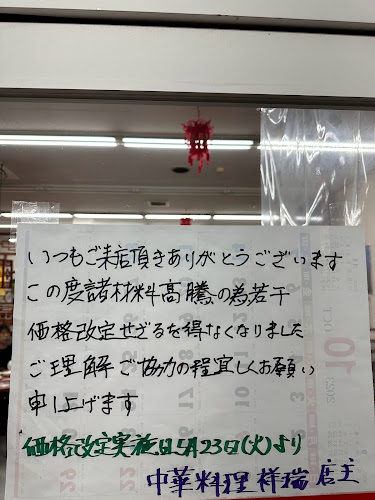 いつもご来店頂きありがとうございます
この度諸材料高騰の為若干
価格改定せざるを得なくなりました
ご理解ご協力の程宜しくお願い
申し上げます
価格改定実施日5月23日(火)より
中華料理 祥瑞 店主
10
OCT
2023